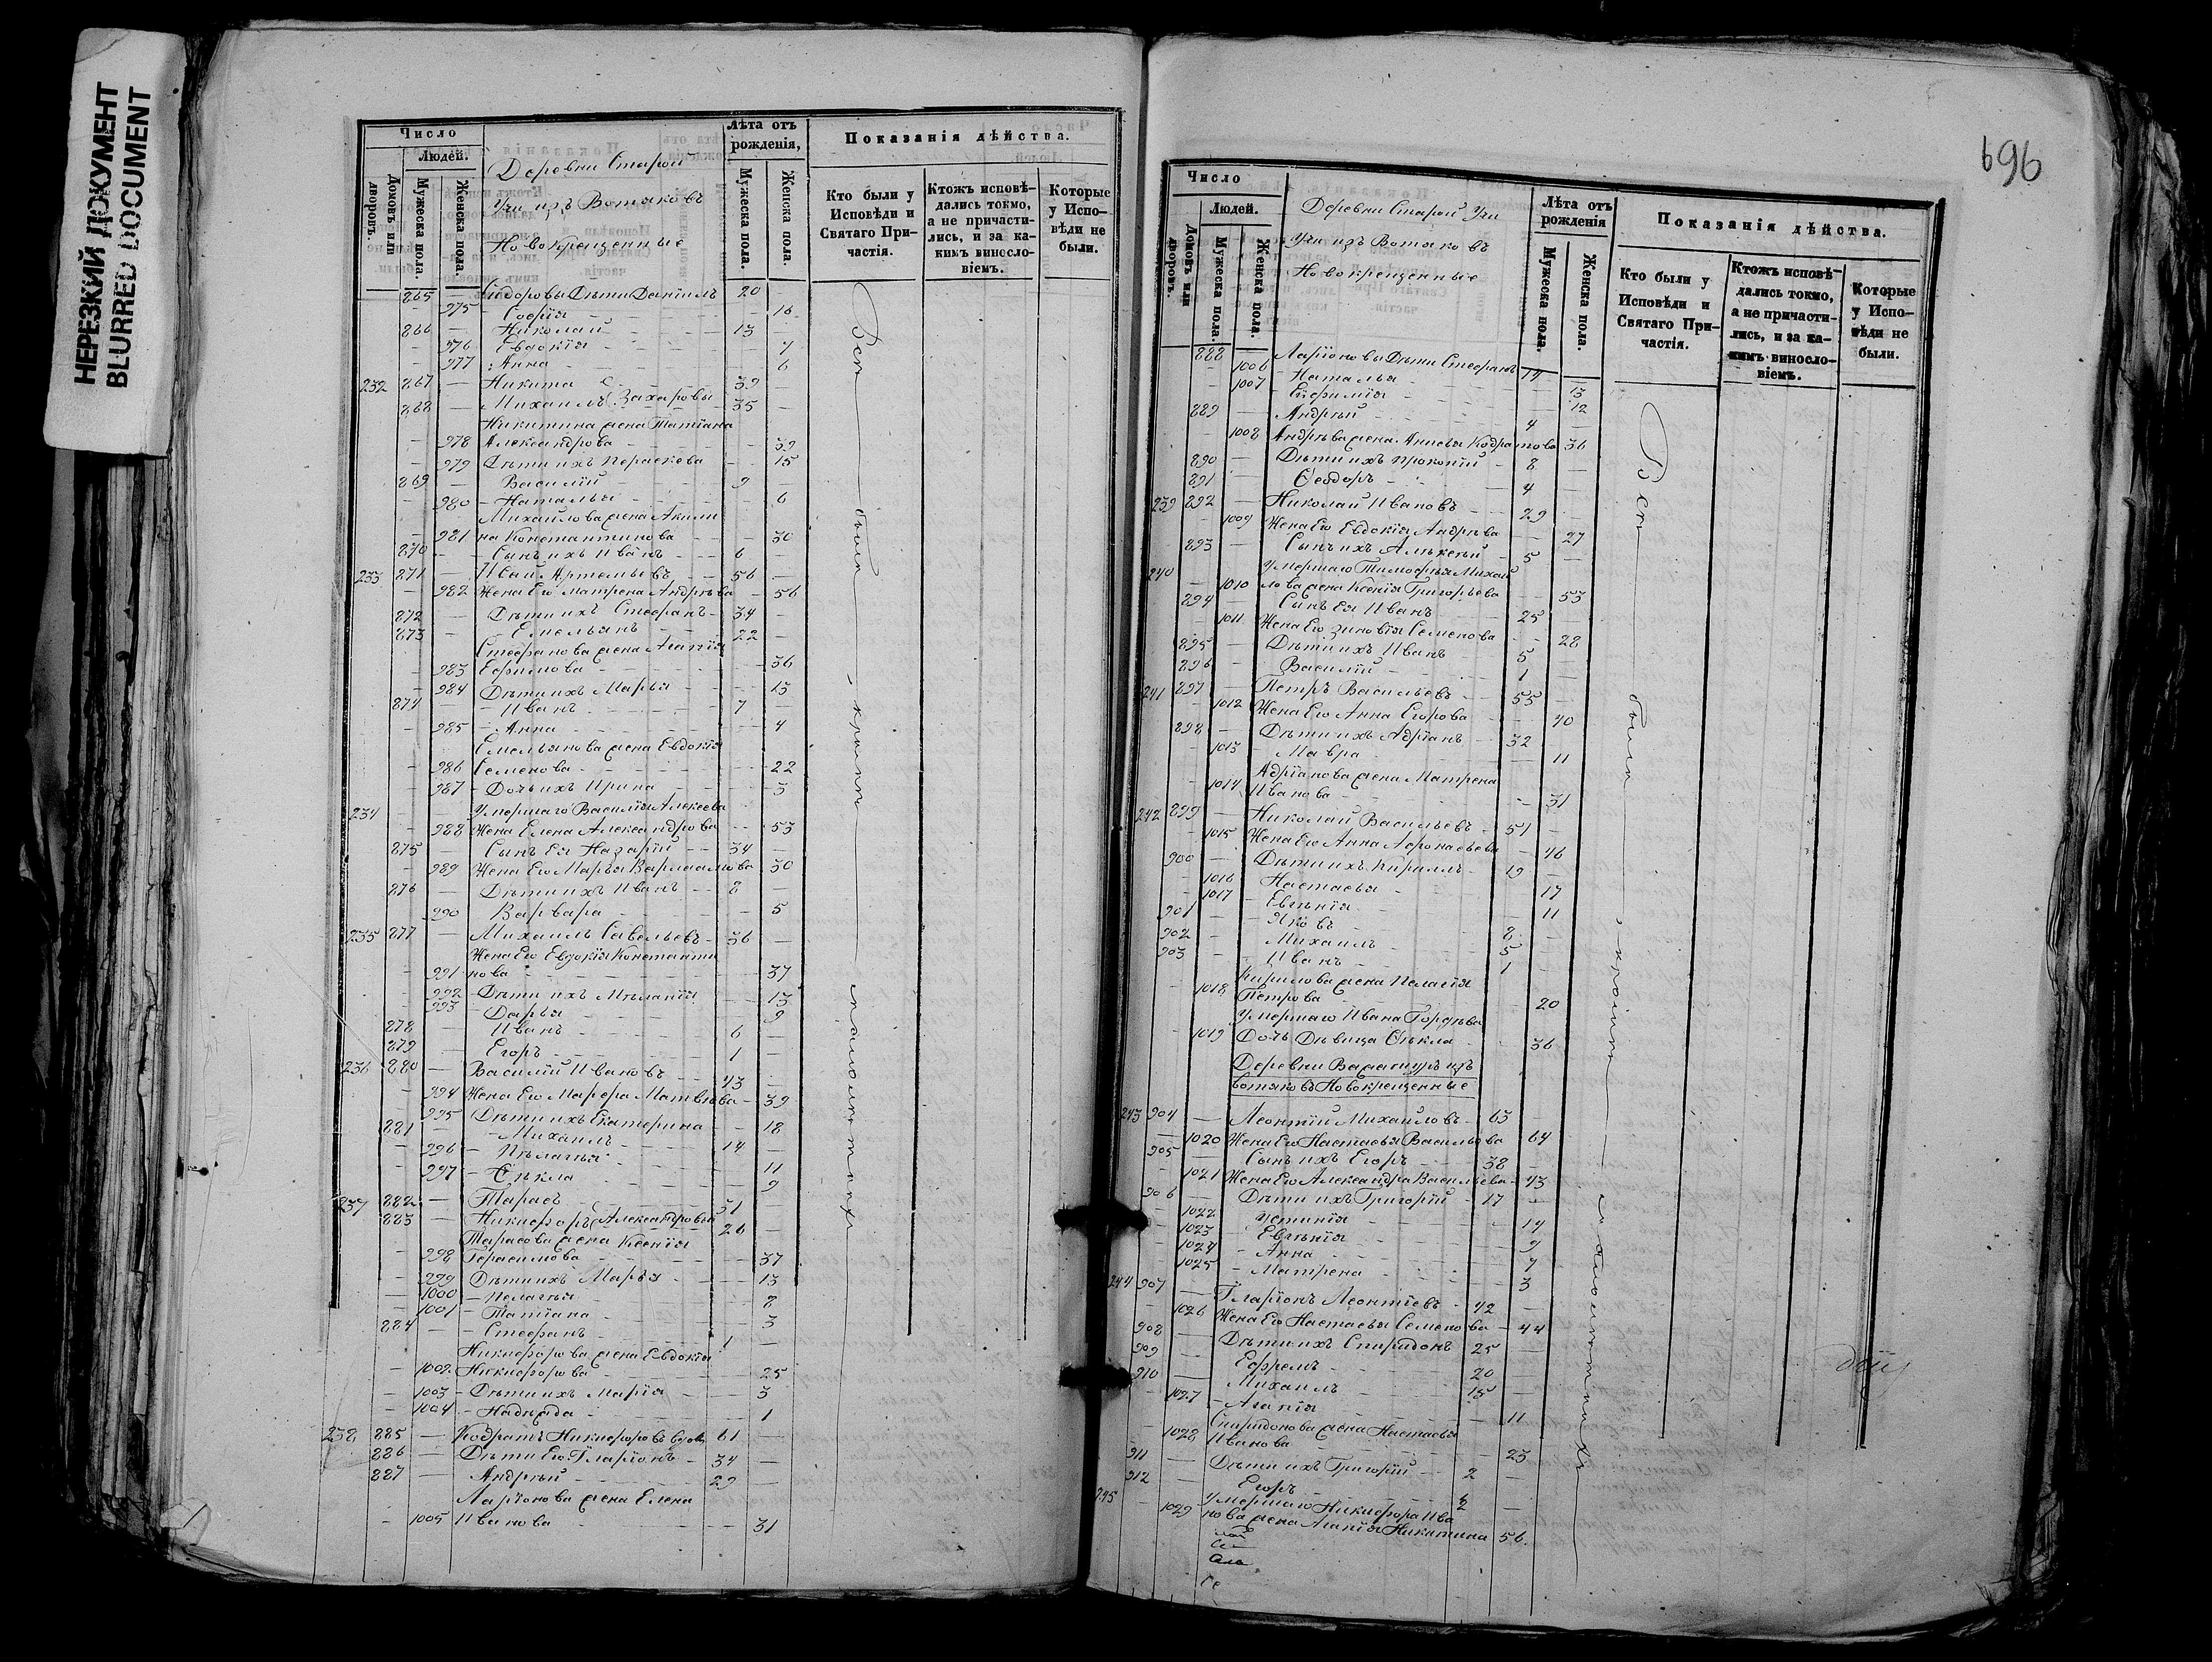 НЕРЕЗКИЙ ДОКУМЕНТ
BLURRED DOCUMENT
Число
Людей.
Домовъ или дворовъ.
Мужеска пола.
Женска пола.
Деревни Старой
Учи изъ Вотяковъ
Новокрещенные
Лѣта отъ рожденія,
Мужеска пола.
Женска пола.
Показанія дѣйства.
Кто были у Исповѣди и Святаго Причастія.
Ктожъ исповѣдались токмо, а не причастились, и за какимъ винословіемъ.
Которые у Исповѣди не были.
865 — Сидоровы Дѣти Данiилъ 20
975 — Софiя 16
866 — Николай 13
976 Евдокiя 7
977 Анна 6
232 867 — Никита 39
868 — Михаилъ Захаровы 35
Никитина жена Татiана
978 Александрова 39
979 Дѣти ихъ Пораскева 15
869 — Василiй 9
980 — Наталья 6
Михайлова жена Акили
981 на Константинова 30
870 — Сынъ ихъ Иванъ 6
233 871 — Исай Артемьевъ 56
982 Жена Его Матрена Андрѣева 56
872 — Дѣти ихъ Стефанъ 34
873 — Емельянъ 22
Стефанова жена Агапiя
983 Ефимова 36
984 Дѣти ихъ Марья 13
874 — Иванъ 7
985 — Анна 4
Емельянова жена Евдокiя
986 Семенова 22
987 — Дочь ихъ Ирина 3
234 Умершаго Василiя Алексеева
988 Жена Елена Александрова 53
875 — Сынъ Ея Назарiй 34
989 Жена Его Марья Варлаамова 30
876 — Дѣти ихъ Иванъ 8
990 Варвара 5
235 877 — Михаилъ Савельевъ 36
Жена Его Евдокiя Константи
991 нова 37
992 — Дѣти ихъ Мѣланiя 13
993 — Дарья 9
878 — Иванъ 6
879 — Егоръ 1
236 880 — Василiй Ивановъ 43
994 Жена Его Марфа Матвѣева 39
995 Дѣти ихъ Екатерина 18
881 — Михаилъ 14
996 — Пѣлагья 11
997 — Ѳѣкла 9
237 882 — Тарасъ 31
883 — Никифоръ Александровы 26
Тарасова жена Ксенiя
998 Герасимова 37
999 Дѣти ихъ Марья 13
1000 — Пелагья 8
1001 — Татiана 3
884 — Стефанъ 1
Никифорова жена Евдокiя
1002 Никифорова 25
1003 — Дѣти ихъ Марiя 3
1004 — Надежда 1
238 885 — Кодратъ Никифоровъ вдовъ 61
886 — Дѣти Его Iларiонъ 34
887 — Андрѣй 29
Ларiонова жена Елена
1005 Иванова 31
Всѣ были кромѣ малолѣтнихъ
696
Число
Людей.
Домовъ или дворовъ.
Мужеска пола.
Женска пола.
Деревни Старой Учи
Учи изъ Вотяковъ
Новокрещенные
Лѣта отъ рожденія
Мужеска пола.
Женска пола.
Показанія дѣйства.
Кто были у Исповѣди и Святаго Причастія.
Ктожъ исповѣдались токмо, а не причастились, и за какимъ винословіемъ.
Которые у Исповѣди не были.
888 Ларiоновы Дѣти Стефанъ 14
1006 — Наталья 13
1007 — Ефимiя 12
889 — Андрѣй 4
1008 Андрѣева жена Анисья Кодратова 36
890 — Дѣти ихъ Прокопiй 8
891 — Ѳеодоръ 4
239 892 — Николай Ивановъ 29
1009 Жена Его Евдокiя Андрѣева 27
893 Сынъ ихъ Алѣксѣй 5
240 Умершаго Тимофѣя Михай
1010 лова жена Ксенiя Григорьева 53
894 — Сынъ Ея Иванъ 25
1011 Жена Его Зиновiя Семенова 28
895 — Дѣти ихъ Иванъ 5
896 — Василiй 1
241 897 — Петръ Васильевъ 55
1012 Жена Его Анна Егорова 40
898 — Дѣти ихъ Адрiанъ 32
1013 — Мавра 11
Адрiанова жена Матрена
1014 Иванова 31
242 899 — Николай Васильевъ 51
1015 Жена Его Анна Афонасьева 46
900 — Дѣти ихъ Кириллъ 19
1016 Настасья 17
1017 — Евгѣнiя 11
901 — Яковъ 8
902 — Михаилъ 5
903 — Иванъ 1
Кирилова жена Пелагiя
1018 Петрова 20
Умершаго Ивана Гордѣева
1019 Дочь Дѣвица Ѳѣкла 36
Деревни Варажжуръ изъ
Вотяковъ Новокрещенные
243 904 — Леонтiй Михайловъ 63
1020 Жена Его Настасья Васильева 64
905 — Сынъ ихъ Егоръ 38
1021 Жена Его Александра Васильева 43
906 — Дѣти ихъ Григорiй 17
1022 Устинiя 14
1023 — Евгѣнiя 9
1024 — Анна 7
1025 — Матрена 3
244 907 — Iларiонъ Леонтiевъ 42
1026 Жена Его Настасья Семенова 44
908 — Дѣти ихъ Спиридонъ 25
909 — Ефремъ 20
910 — Михаилъ 15
1027 — Агапiя 11
Спиридонова жена Настасья
1028 Иванова 23
911 — Дѣти ихъ Григорiй 2
912 — Егоръ
245 Умершаго Никифора Ива
1029 нова жена Агапiя Никитина 56
Всѣ были кромѣ малолѣтнихъ